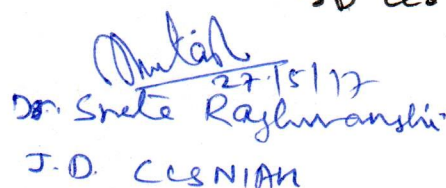 27/5/17
Dr. Sneta Raghuvanshi
J.D. CCSNIAH